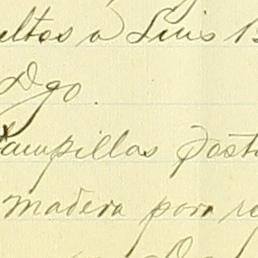 eltos a Luis B
Dgo.
tampillas posta
madera para re